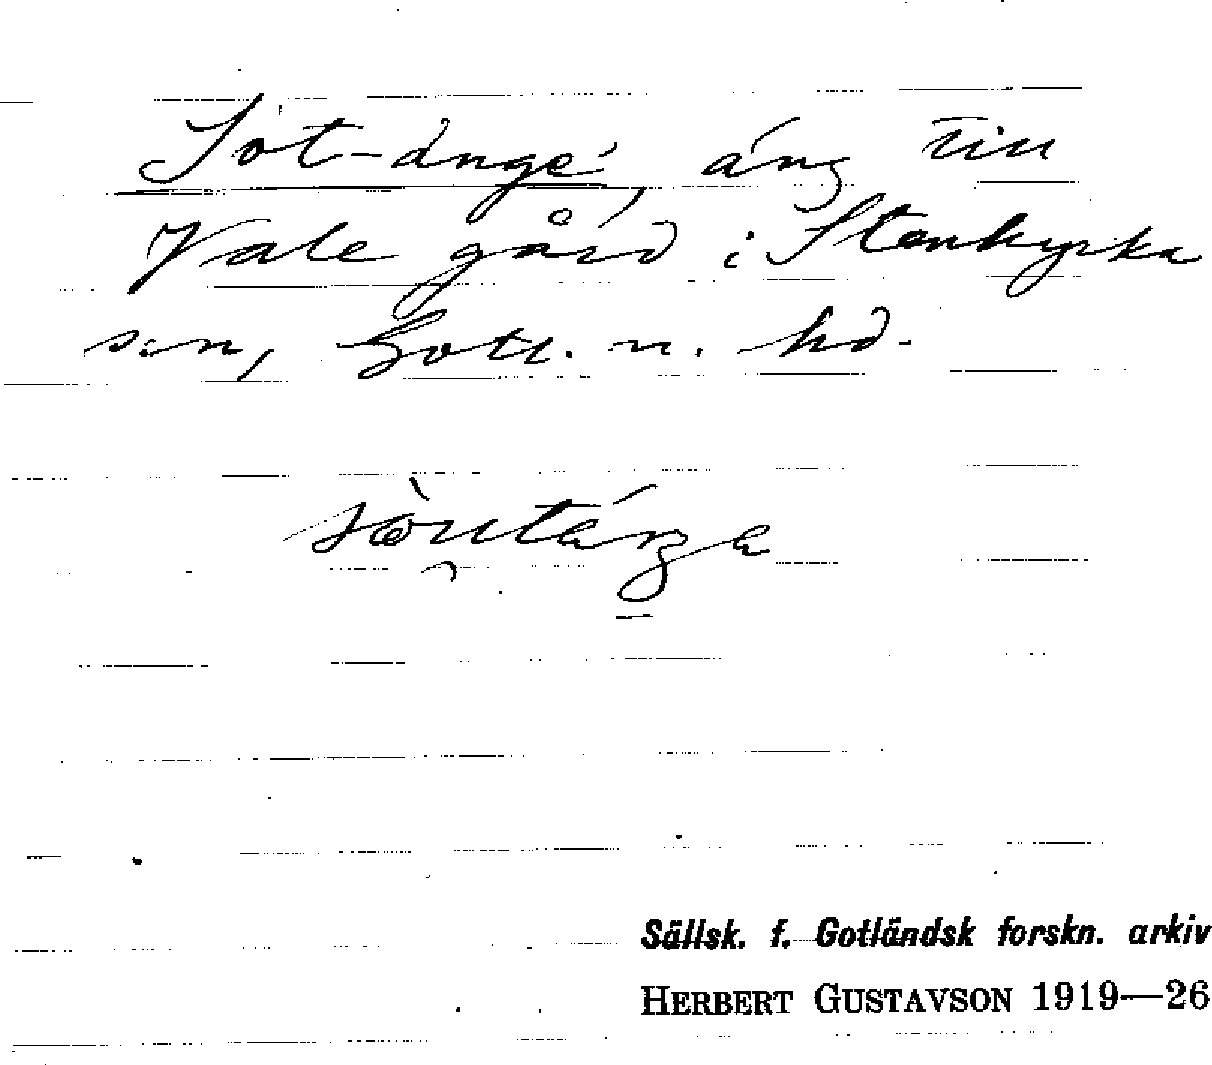 Söt-änge, äng till
Vale gård i Stenkyrka
s:n, Gotl. n. hd.
Sällsk. f. Gotländsk forskn. arkiv
HERBERT GUSTAVSON 1919—26